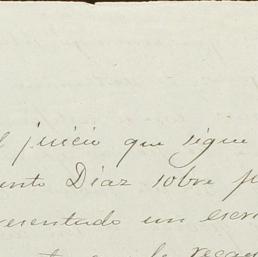 l juicio que sigue
anto Díaz sobre p
resentado un escri
la recau